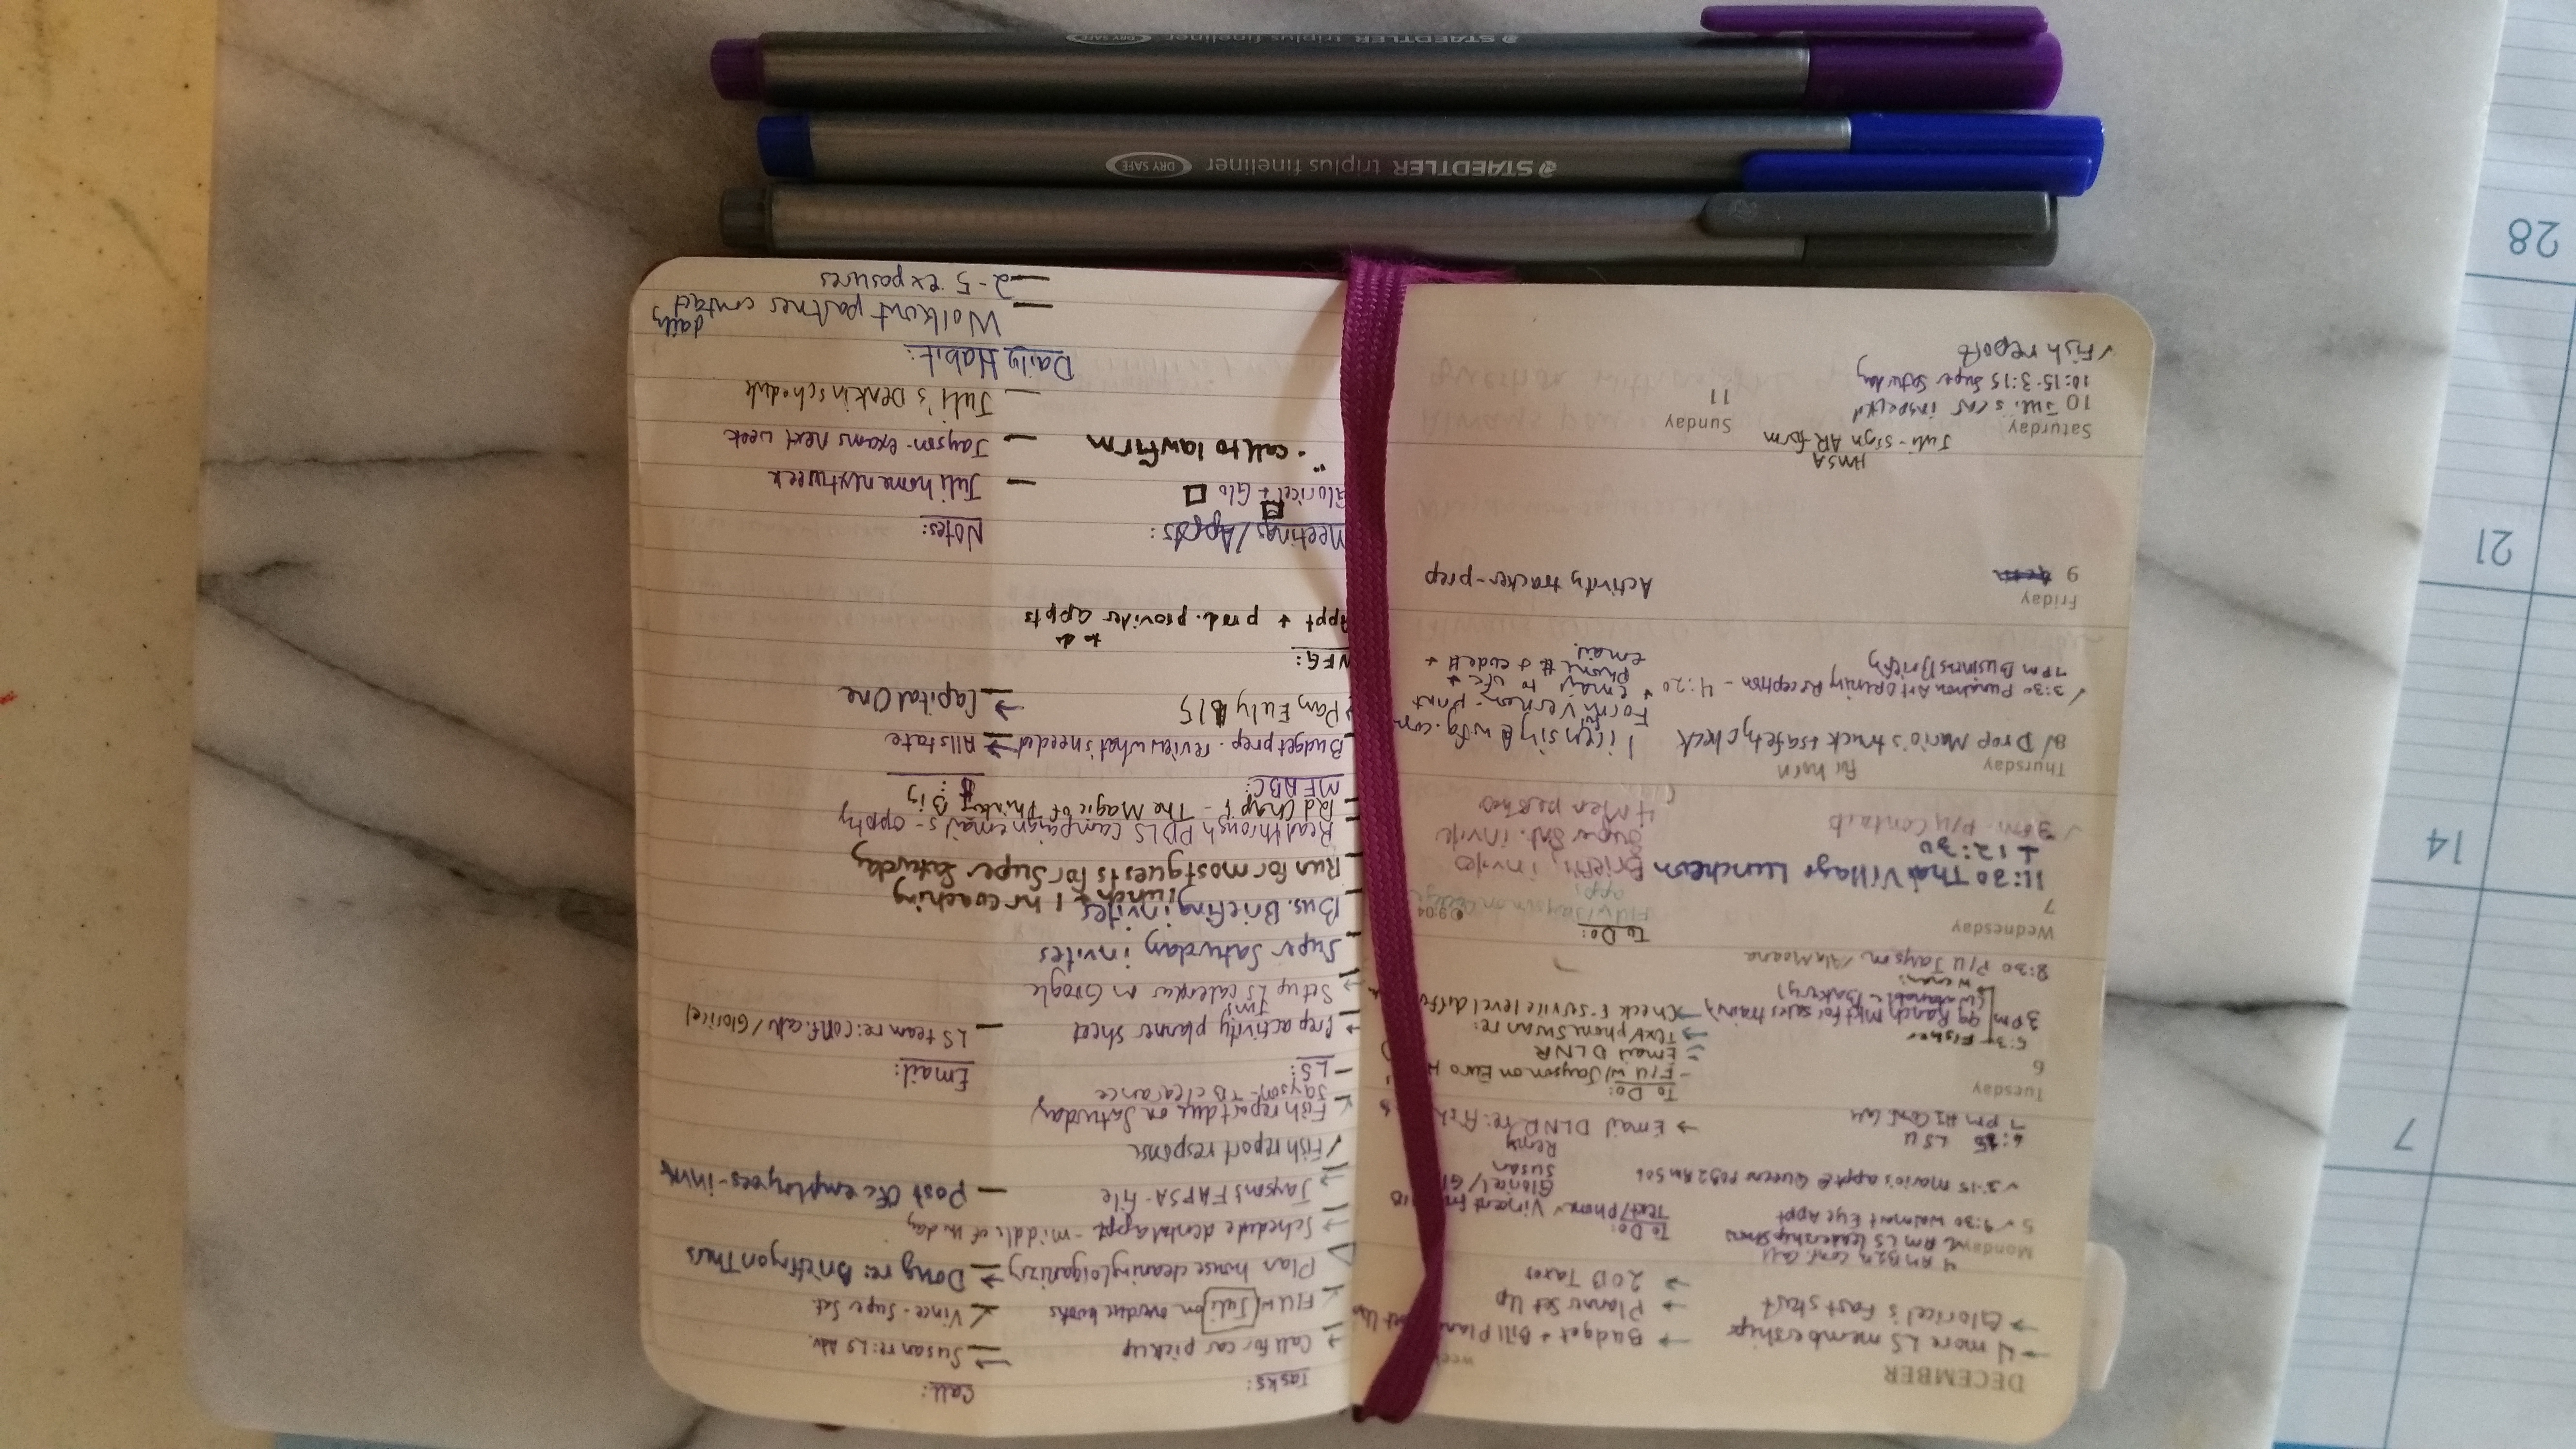 DECEMBER
week
→ 4 more LS memberships
→ Gloricel's Fast start
→ Budget + Bill Plan
→ Planner Set Up
→ 2013 Taxes
Monday
5
Conf. Call
Am LS Leadership Show
✓ 9:30 Walmart Eye Appt
✓ 3:15 Mario's appt @ Queens
LSU
7 pm HI Conf. Call
To Do:
Text/Phone ✓ Vincent
Gloricel/
Susan
Remy
→ Email DLNR re: fish
Tuesday
6
Fisher
3pm 99 Ranch Mkt for sales training
Bakery)
8:30 P/U Jayson /Ala Moana
To Do:
- F/U w/ Jayson on Euro
= Email DLNR
→ Text/phone Susan re:
→ Check service level
Wednesday
7
9:04
11:30 Thai Village Luncheon
+ 12:30
✓ 3pm - P/U Contacts
To Do:
F/U w/ Jayson on
apps
Briefing invite
Super Sat. invite
4
Thursday
8
for horn
✓ Drop Mario's truck + safety check
✓ 3:30 Punahou Art Opening Reception - 4:20
7pm Business Briefing
licensing@wfg.com
Form for Vernon - print
+ email to ofc +
phone # + code # +
email.
Friday
9
Activity tracker - prep
HMSA
Juli - sign AR form
Saturday
10 Juli's car inspected
10:15-3:15 Super Saturday
✓ Fish report
Sunday
11
Tasks:
→ Call for car pick up
✓ F/U w/ Juli on overdue books
Plan house cleaning/organizing
→ Schedule dental appt - middle of the day
→ Jayson's FAFSA - file
✓ Fish report response
✓ Fish report due on Saturday
Jayson - TB clearance
- LS:
→ Prep activity planner sheet
→ Set up LS calendar on Google
- Super Saturday invites
- Bus. Briefing invites
lunch + 1 hr coaching
- Run for most guests for Super Saturday
- Read through PBLS campaign emails - oppty
- Rd Chap 1 - The Magic of Thinking Big
MFABC:
Budget prep - review what's needed
Pay
WFG:
to do
Appt + prod. provider appts
Meetings/Appts:
Gloricel + Glo
" - call to law firm
Call:
→ Susan re: LS Adv.
✓ Vince - Super Sat.
→ Doug re: Briefing on Thurs
- Post Ofc employees - invite
Email:
- LS team re: conf. call / Gloricel
$:
→ Allstate
→ Capital One
Notes:
- Juli home next week
- Jayson - exams next week
- Juli's schedule
Daily Habit:
- Workout partner contact daily
- 2-5 exposures
7
14
21
28
STAEDTLER triplus fineliner DRY SAFE
STAEDTLER triplus fineliner DRY SAFE